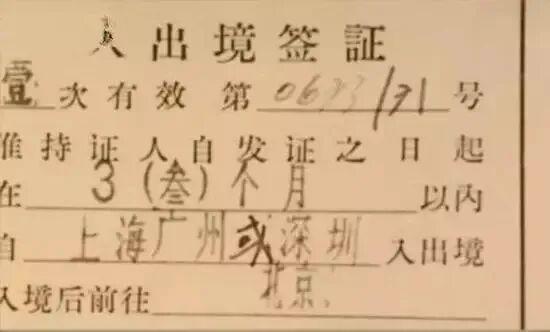 入出境签証
壹次有效 第 0633/71 号
准持证人自发证之日起
在 3(叁)个月 以内
自 上海广州或深圳 入出境
入境后前往 北京